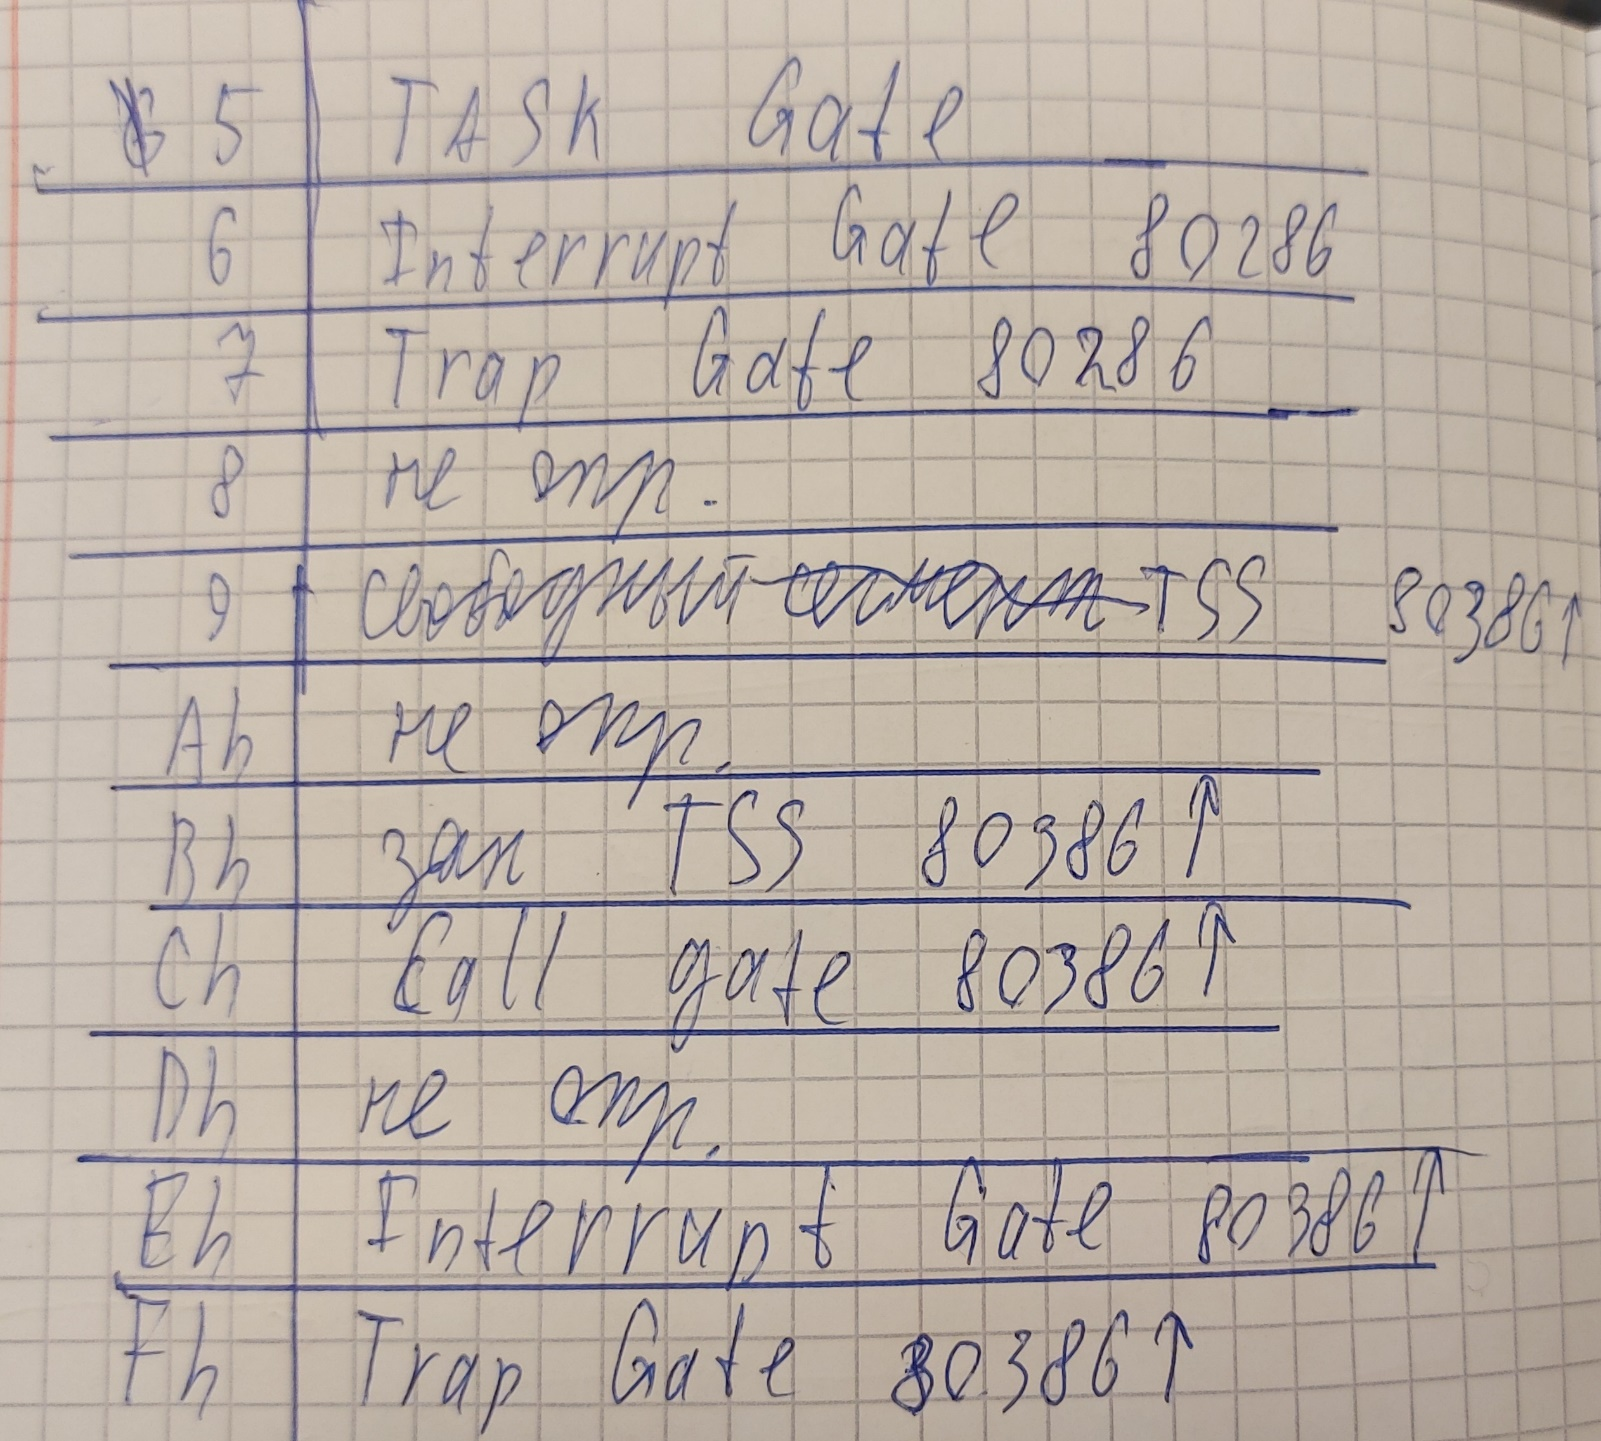 5 TASK Gate
6 Interrupt Gate 80286
7 Trap Gate 80286
8 не опр.
9 свободный сегмент TSS 80386↑
Ah не опр.
Bh зан TSS 80386↑
Ch Call gate 80386↑
Dh не опр.
Eh Interrupt Gate 80386↑
Fh Trap Gate 80386↑